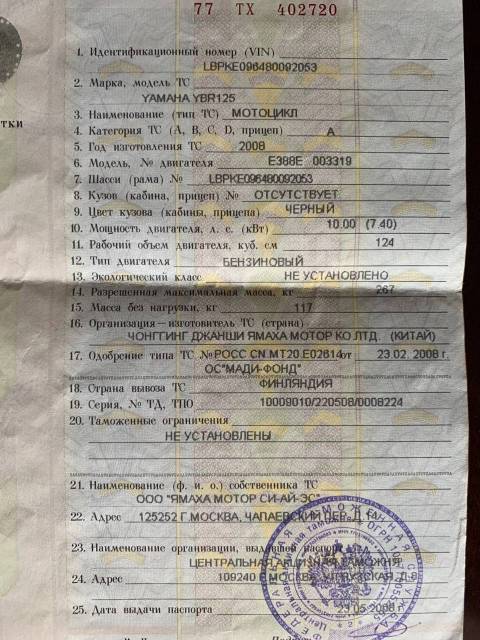 77 ТХ 402720
1. Идентификационный номер (VIN)
LBPKE096480092053
2. Марка, модель ТС
YAMAHA YBR125
тки
3. Наименование (тип ТС) МОТОЦИКЛ
4. Категория ТС (А, В, С, D, прицеп) А
5. Год изготовления ТС 2008
6. Модель, № двигателя E388E 003319
7. Шасси (рама) № LBPKE096480092053
8. Кузов (кабина, прицеп) № ОТСУТСТВУЕТ
9. Цвет кузова (кабины, прицепа) ЧЕРНЫЙ
10. Мощность двигателя, л. с. (кВт) 10.00 (7.40)
11. Рабочий объем двигателя, куб. см 124
12. Тип двигателя БЕНЗИНОВЫЙ
13. Экологический класс НЕ УСТАНОВЛЕНО
14. Разрешенная максимальная масса, кг 267
15. Масса без нагрузки, кг 117
16. Организация—изготовитель ТС (страна)
ЧОНГГИНГ ДЖАНШИ ЯМАХА МОТОР КО.ЛТД. (КИТАЙ)
17. Одобрение типа ТС № РОСС CN.MT20.E02614 от 23.02.2008 г.
ОС"МАДИ-ФОНД"
18. Страна вывоза ТС ФИНЛЯНДИЯ
19. Серия, № ТД, ТПО 10009010/220508/0008224
20. Таможенные ограничения
НЕ УСТАНОВЛЕНЫ
21. Наименование (ф. и. о.) собственника ТС
ООО "ЯМАХА МОТОР СИ-АЙ-ЭС"
22. Адрес 125252 Г.МОСКВА, ЧАПАЕВСКИЙ ПЕР, Д.14
23. Наименование организации, выдавшей паспорт
ЦЕНТРАЛЬНАЯ АКЦИЗНАЯ ТАМОЖНЯ
24. Адрес 109240 Г.МОСКВА,
25. Дата выдачи паспорта 23.05.2008 г.